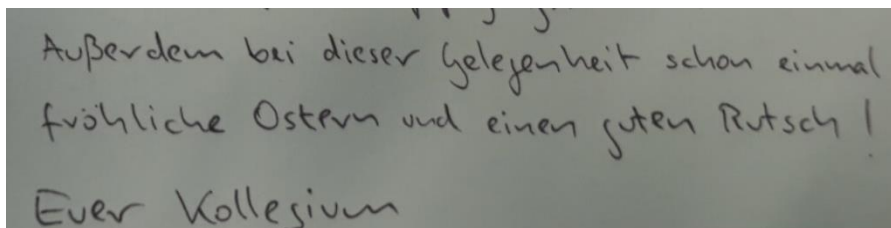 Außerdem bei dieser Gelegenheit schon einmal
fröhliche Ostern und einen guten Rutsch!
Euer Kollegium